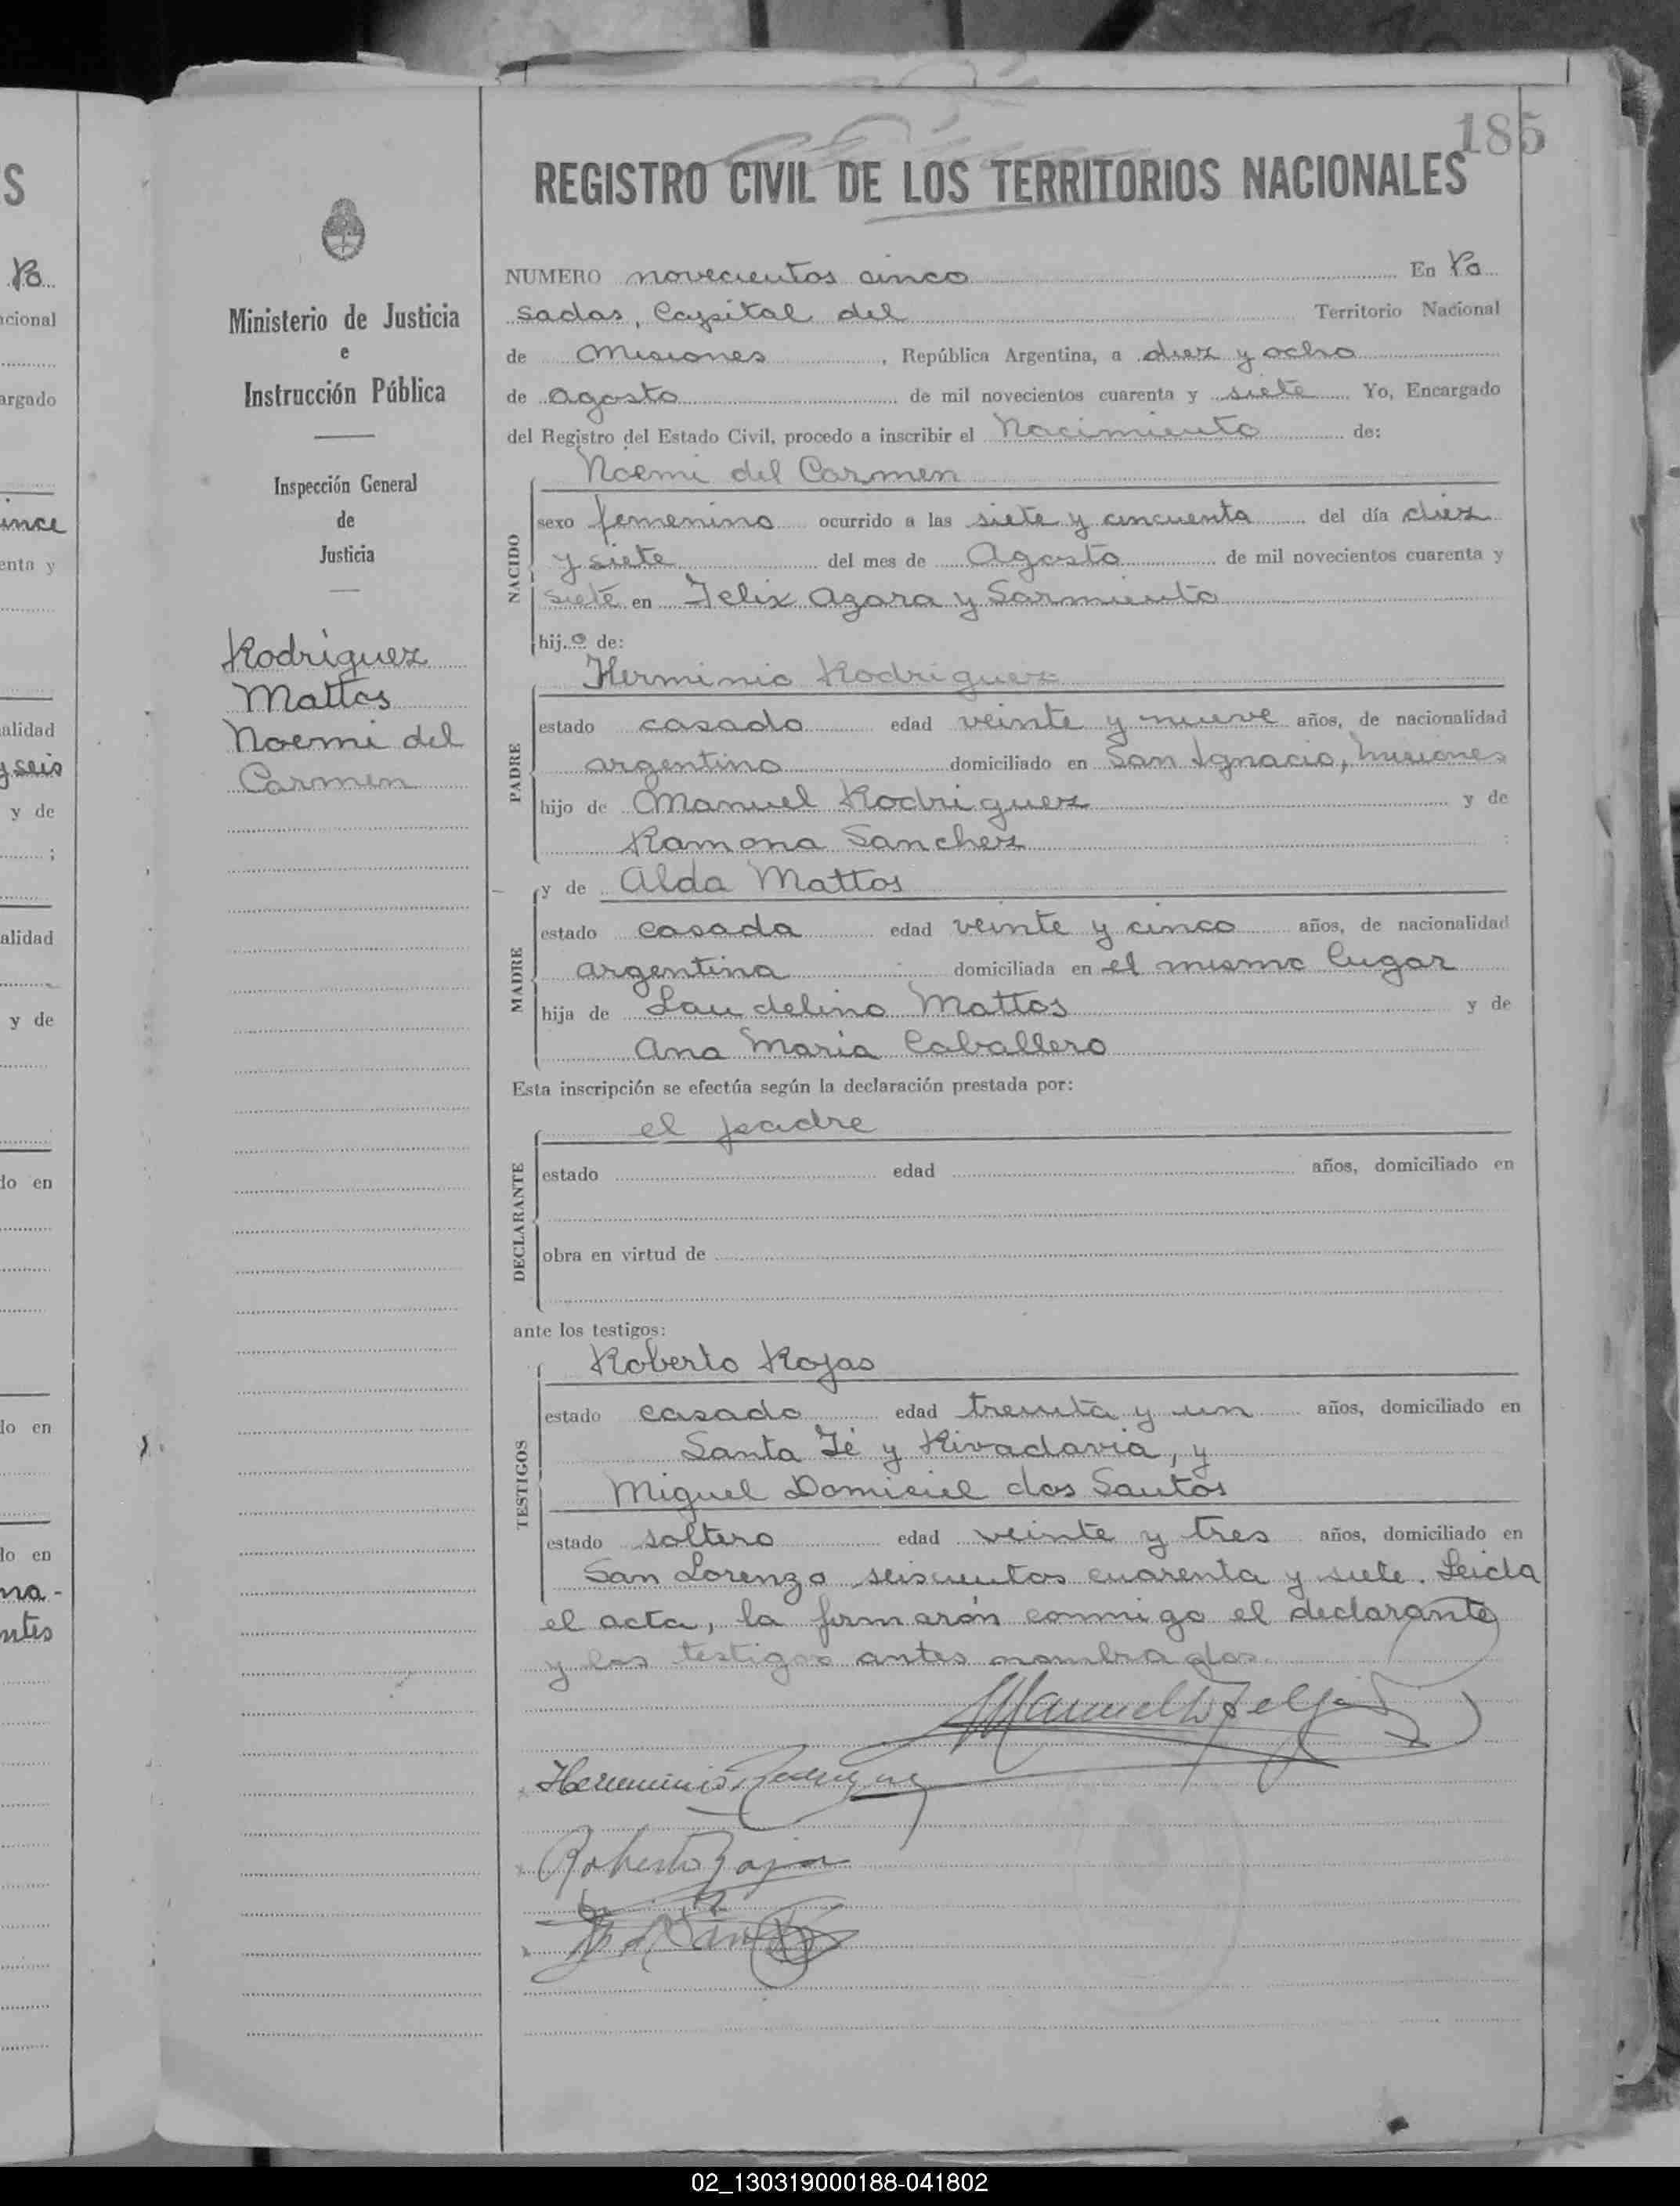 185
REGISTRO CIVIL DE LOS TERRITORIOS NACIONALES
Ministerio de Justicia
e
Instrucción Pública
Inspección General
de
Justicia
Rodríguez
Mattos
Noemi del
Carmen
NUMERO novecientos cinco En Po
sadas, Capital del Territorio Nacional
de Misiones, República Argentina, a diez y ocho
de Agosto de mil novecientos cuarenta y siete Yo, Encargado
del Registro del Estado Civil, procedo a inscribir el Nacimiento de:
Noemi del Carmen
NACIDO
sexo femenino ocurrido a las siete y cincuenta del día diez
y siete del mes de Agosto de mil novecientos cuarenta y
siete en Felix Azara y Sarmiento
hij a de:
Herminio Rodriguez
PADRE
estado casado edad veinte y nueve años, de nacionalidad
argentino domiciliado en San Ignacio, Misiones
hijo de Manuel Rodriguez y de
Ramona Sanchez
y de Alda Mattos
MADRE
estado casada edad veinte y cinco años, de nacionalidad
argentina domiciliada en el mismo lugar
hija de Laudelino Mattos y de
Ana Maria Caballero
Esta inscripción se efectúa según la declaración prestada por:
el padre
DECLARANTE
estado edad años, domiciliado en
obra en virtud de
ante los testigos:
Roberto Rojas
TESTIGOS
estado casado edad treinta y un años, domiciliado en
Santa Fé y Rivadavia, y
Miguel Domiciel dos Santos
estado soltero edad veinte y tres años, domiciliado en
San Lorenzo seiscientos cuarenta y siete. Leida
el acta, la firmarón conmigo el declarante
y los testigos antes nombrados.
Herminio Rodriguez
Roberto Rojas
S
Po
acional
argado
ince
enta y
alidad
y seis
y de
;
alidad
y de
do en
do en
do en
na-
ntes
02_130319000188-041802